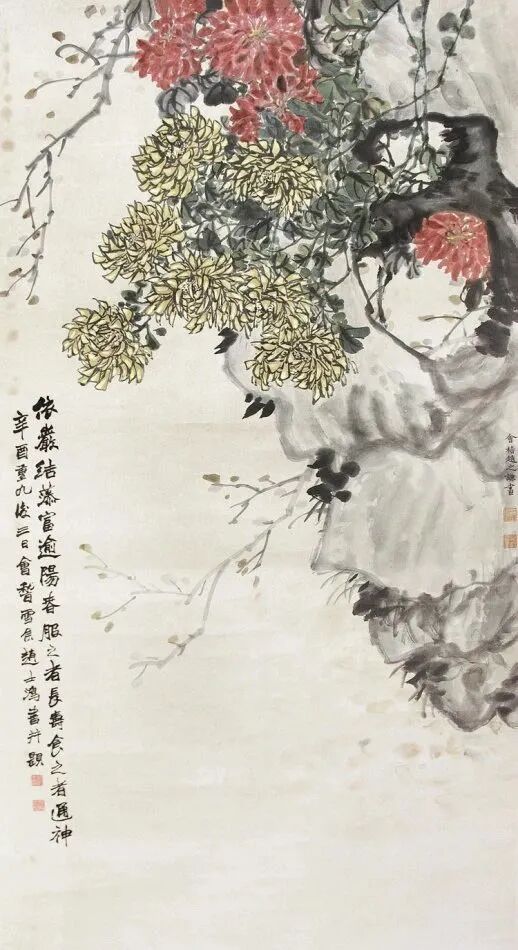 會稽趙之謙畫
依巖結蒂富逾陽春服之者長壽食之者通神
辛酉重九後三日會稽雪侯趙士鴻畫并題